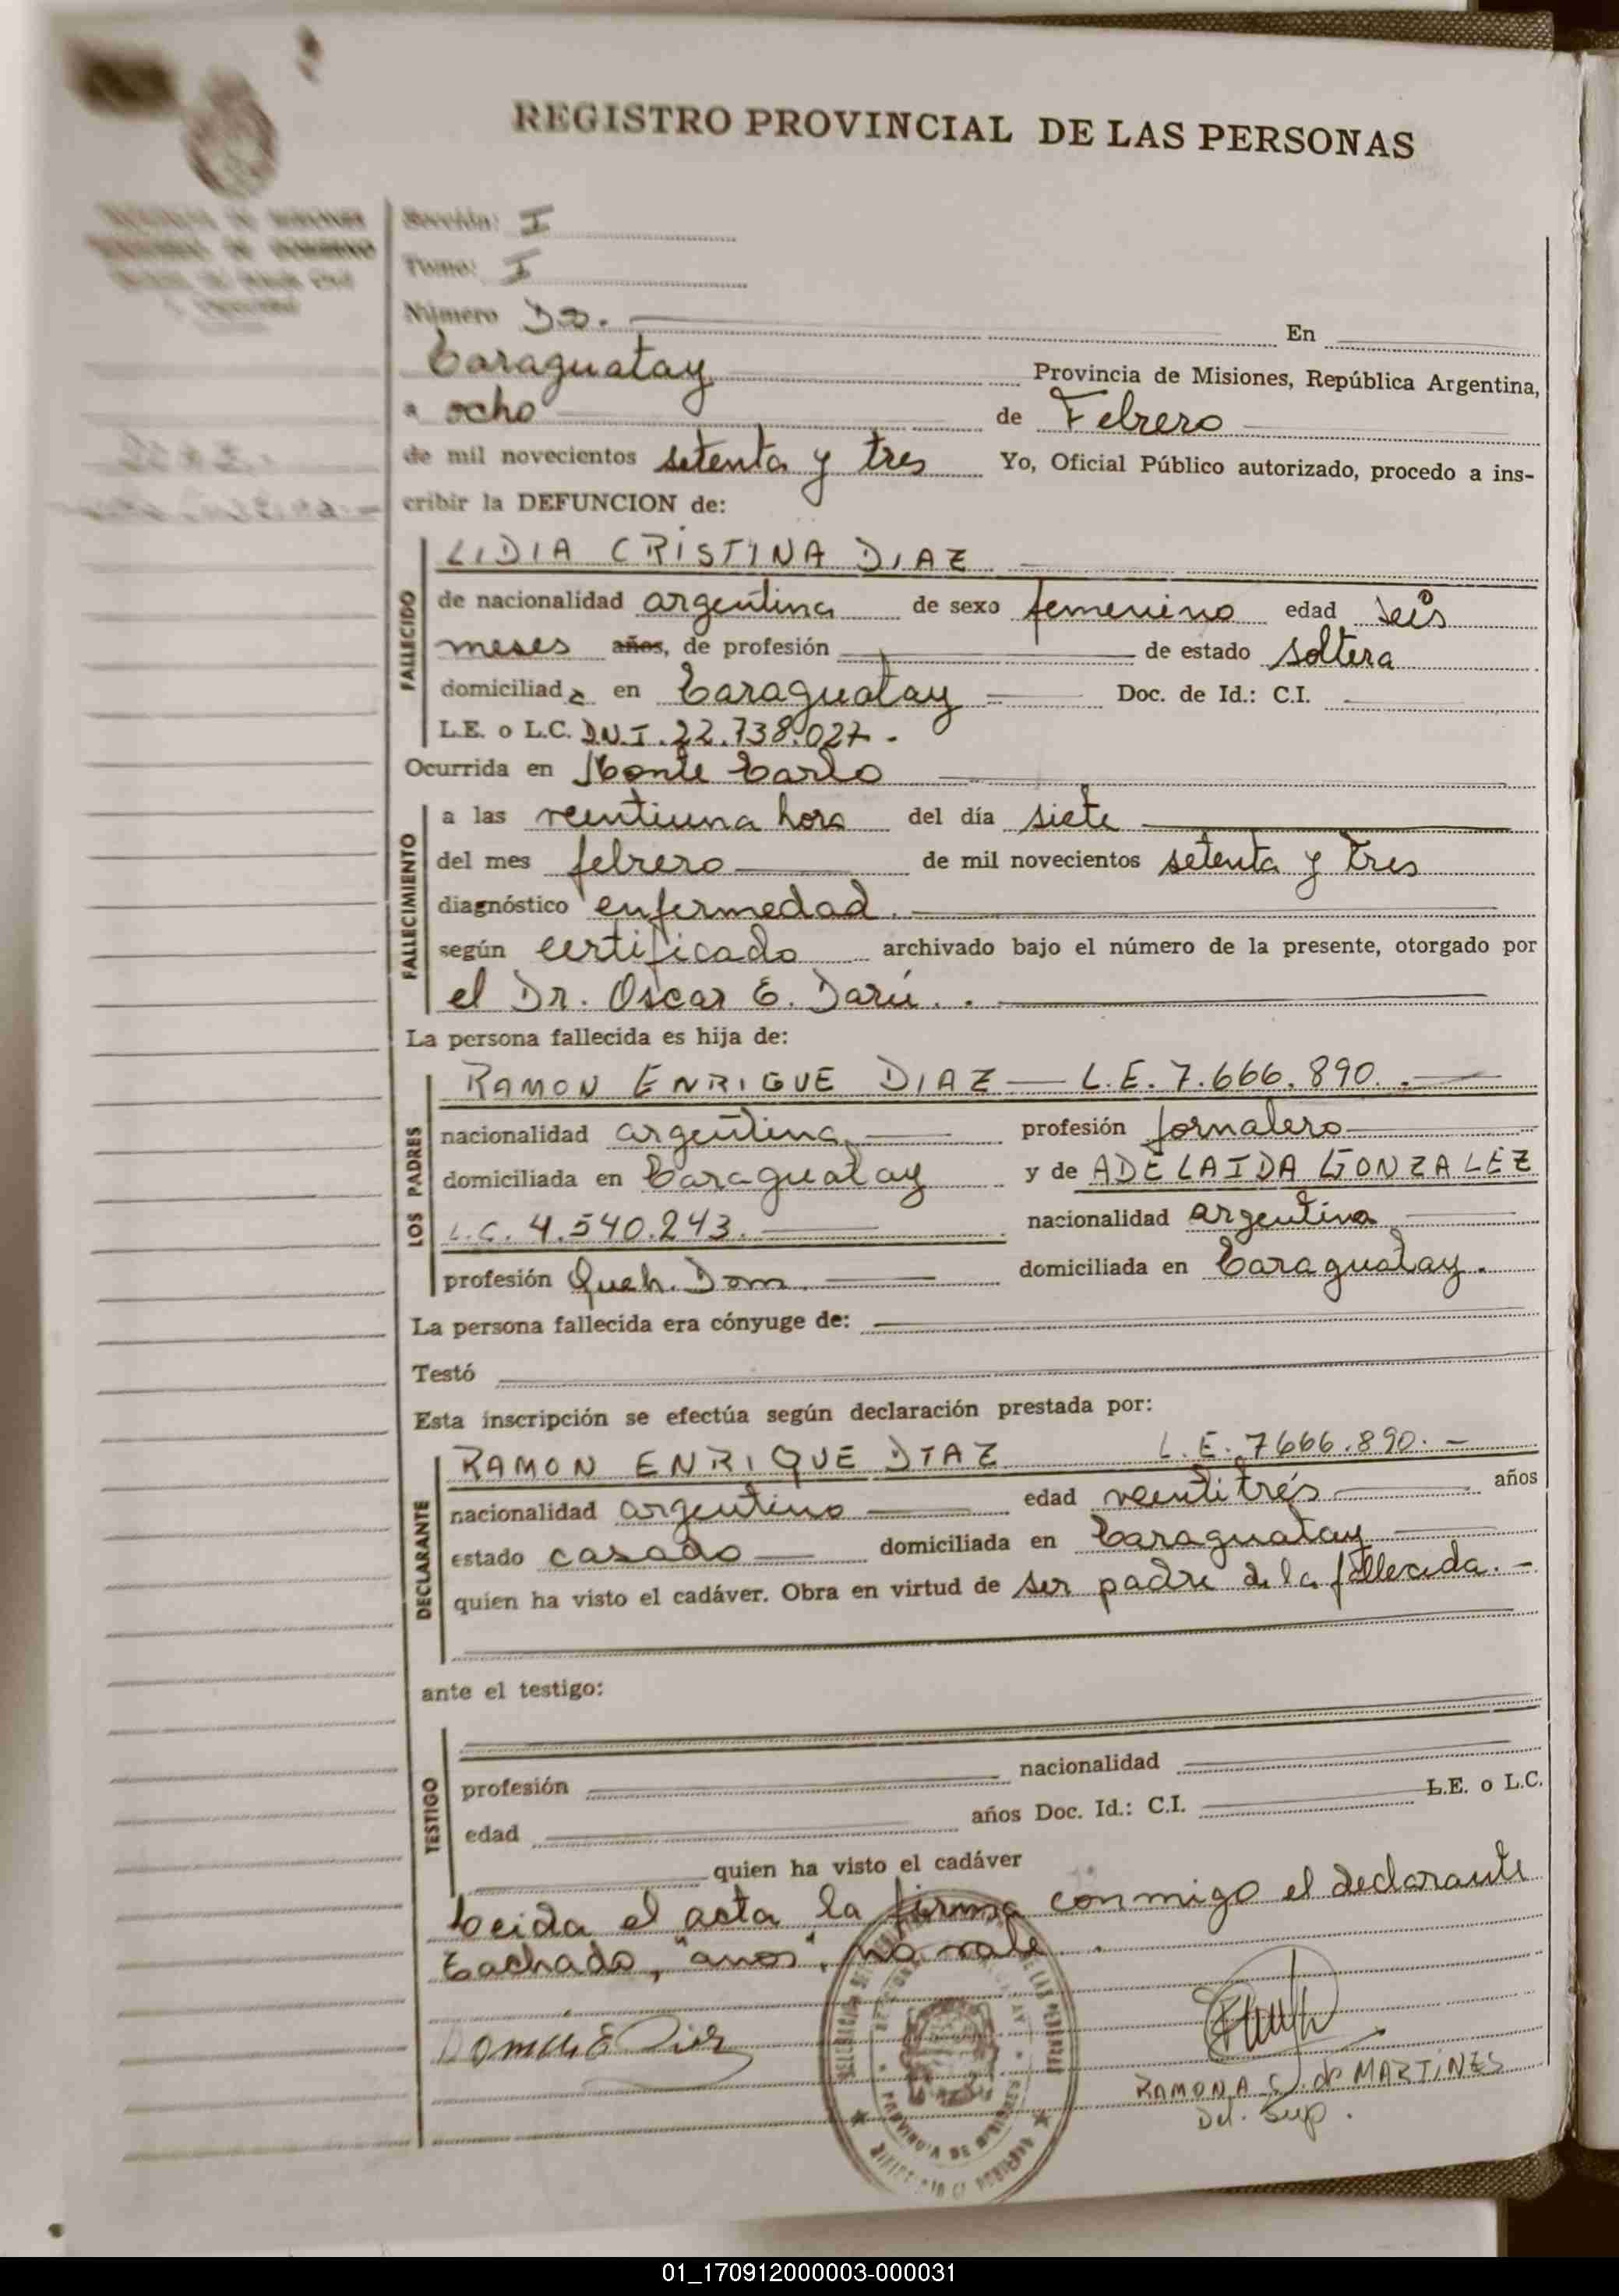 REGISTRO PROVINCIAL DE LAS PERSONAS
PROVINCIA DE MISIONES
MINISTERIO DE GOBIERNO
Sección: I
Tomo: I
Número Dos. En
Caraguatay Provincia de Misiones, República Argentina,
a ocho de Febrero
de mil novecientos setenta y tres Yo, Oficial Público autorizado, procedo a ins-
cribir la DEFUNCION de:
DIAZ.-
Lidia Cristina.-
FALLECIDO
LIDIA CRISTINA DIAZ
de nacionalidad argentina de sexo femenino edad seis
meses años, de profesión de estado soltera
domiciliada en Caraguatay Doc. de Id.: C.I.
L.E. o L.C. D.N.I. 22.738.027.-
Ocurrida en Monte Carlo
FALLECIMIENTO
a las veintiuna hora del día siete
del mes febrero de mil novecientos setenta y tres
diagnóstico enfermedad.
según certificado archivado bajo el número de la presente, otorgado por
el Dr. Oscar E. Darú.
La persona fallecida es hija de:
LOS PADRES
RAMON ENRIQUE DIAZ — L.E. 7.666.890.-
nacionalidad argentina profesión jornalero
domiciliada en Caraguatay y de ADELAIDA GONZALEZ
L.C. 4.540.243. nacionalidad argentina
profesión Queh. Dom. domiciliada en Caraguatay.
La persona fallecida era cónyuge de:
Testó
Esta inscripción se efectúa según declaración prestada por:
DECLARANTE
RAMON ENRIQUE DIAZ L.E. 7666.890.-
nacionalidad argentino edad veintitrés años
estado casado domiciliada en Caraguatay
quien ha visto el cadáver. Obra en virtud de ser padre de la fallecida.-
ante el testigo:
TESTIGO
profesión nacionalidad
edad años Doc. Id.: C.I. L.E. o L.C.
quien ha visto el cadáver
Leida el acta la firma conmigo el declarante
Tachado, "años", no vale.
RAMONA de MARTINES
Del. Sup.
PROVINCIA DE MISIONES
01_170912000003-000031